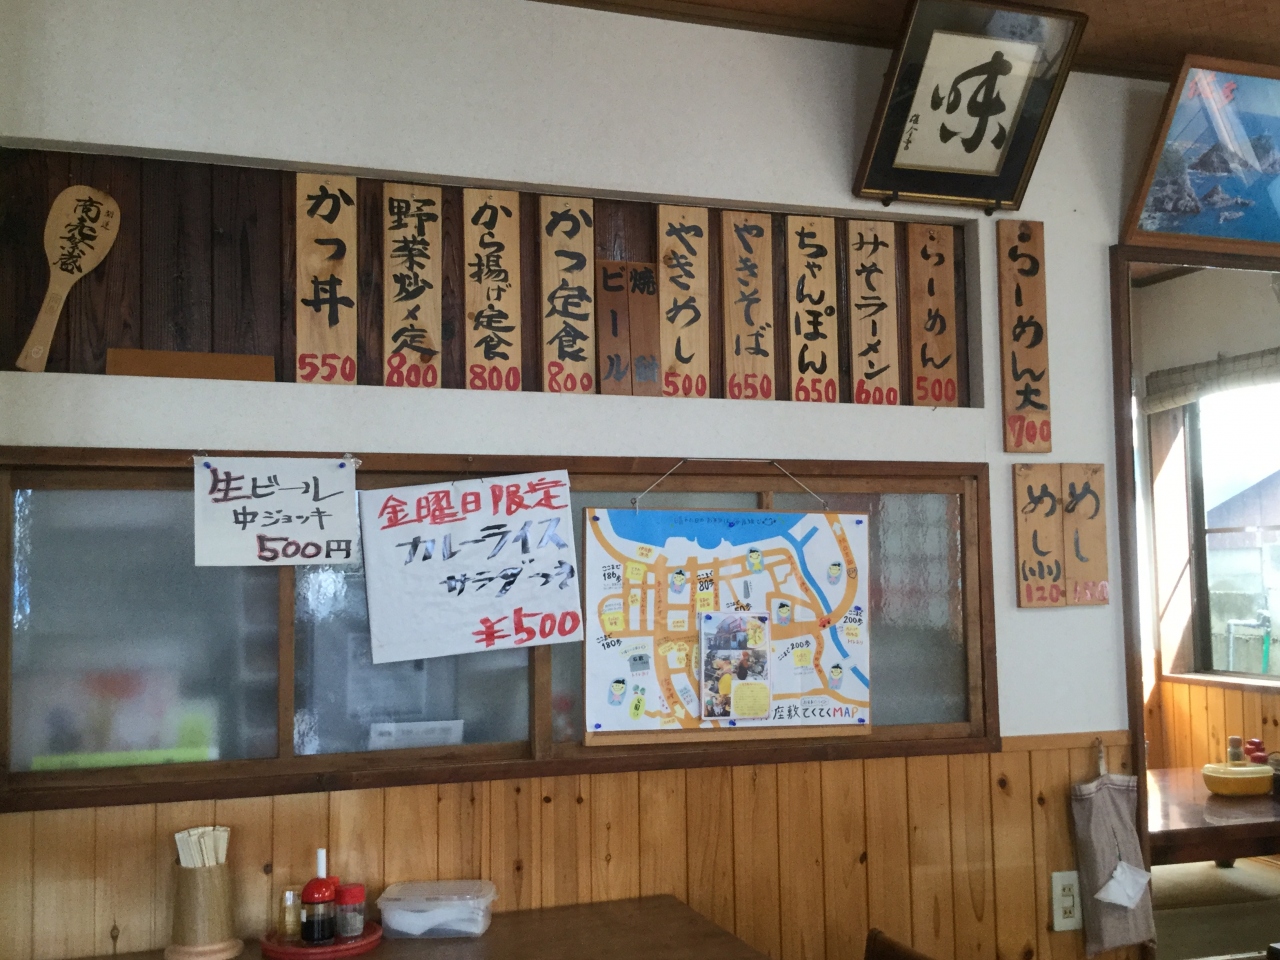 味
らーめん大
700
らーめん
500
みそラーメン
600
ちゃんぽん
650
やきそば
650
やきめし
500
焼酎
ビール
かつ定食
800
から揚げ定食
800
野菜炒メ定
800
かつ丼
550
開運
商売繁盛
めし
めし(小)
120
生ビール
中ジョッキ
500円
金曜日限定
カレーライス
サラダつき
¥500
ここまで
186歩
ここまで
80歩
ここまで
200歩
ここまで
180歩
ここまで200歩
座敷てくてくMAP